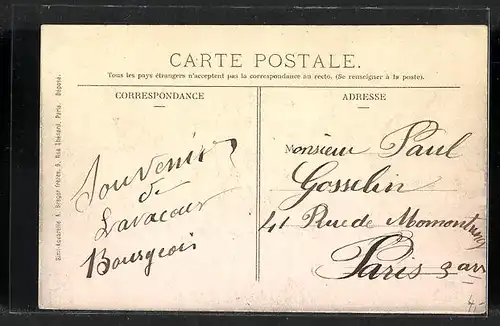 CARTE POSTALE.
Tous les pays étrangers n'acceptent pas la correspondance au recto. (Se renseigner à la poste).
CORRESPONDANCE
Souvenir
de
Lavacour
Bourgeois
ADRESSE
Monsieur Paul
Gosselin
41 Rue de
Paris 3 arr
Simi-Aquarelle A. Breger frères, 9, Rue Thénard, Paris. Déposé.
4,-